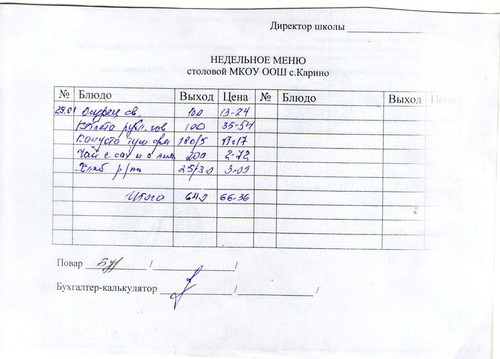 Директор школы
НЕДЕЛЬНОЕ МЕНЮ
столовой МКОУ ООШ с.Карино
№ Блюдо Выход Цена № Блюдо Выход Цена
29.01 Огурец св 100 13-24
Котлета руб. гов 100 35-54
Капуста туш 180/5 11-17
Чай с сах и с лим 200 2-72
Хлеб р/пш 25/30 3-09
Итого 640 66-36
Повар / /
Бухгалтер-калькулятор / /